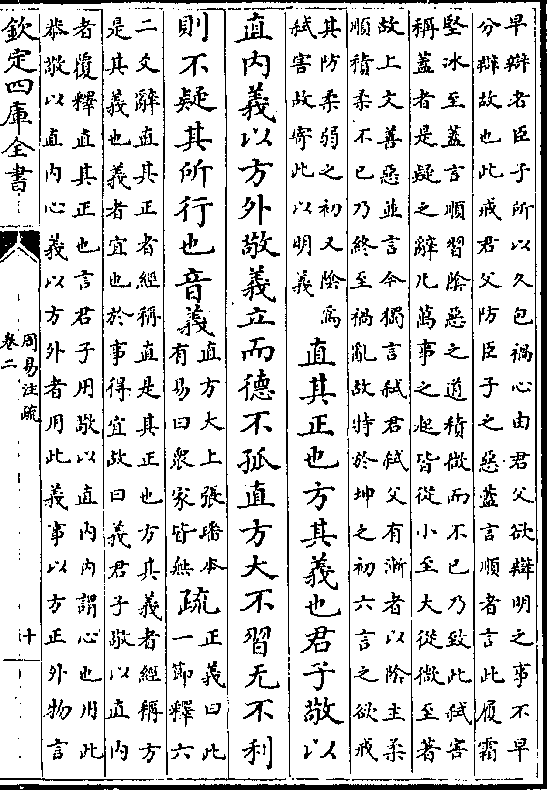 早辯者臣子所以久包禍心由君父欲辯明之事不早
分辯故也此戒君父防臣子之惡葢言順者言此履霜
堅冰至葢言順習陰惡之道積微而不已乃致此弑害
稱葢者是疑之辭凡萬事之起皆從小至大從微至著
故上文善惡並言今獨言弑君弑父有漸者以陰主柔
順積柔不已乃終至禍亂故特於坤之初六言之欲戒
其防柔弱之初又陰為
弑害故寄此以明義
直其正也方其義也君子敬以
直内義以方外敬義立而德不孤直方大不習无不利
則不疑其所行也音義
直方大上張璠本
有易曰衆家皆無
疏
正義曰此
一節釋六
二爻辭直其正者經稱直是其正也方其義者經稱方
是其義也義者宜也於事得宜故曰義君子敬以直内
者覆釋直其正也言君子用敬以直内内謂心也用此
恭敬以直内心義以方外者用此義事以方正外物言
欽定四庫全書
周易注疏
卷二
十